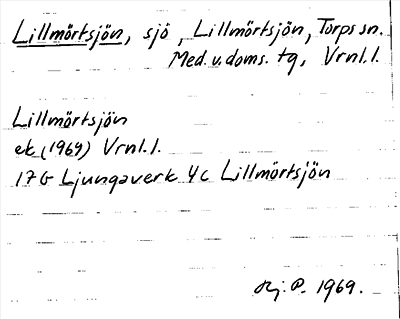 Lillmörtsjön, sjö, Lillmörtsjön, Torps sn.
Med. v. doms. tg, Vrnl. l.
Lillmörtsjön
ek (1969) Vrnl. l.
17G Ljungaverk 4c Lillmörtsjön
P. 1969.